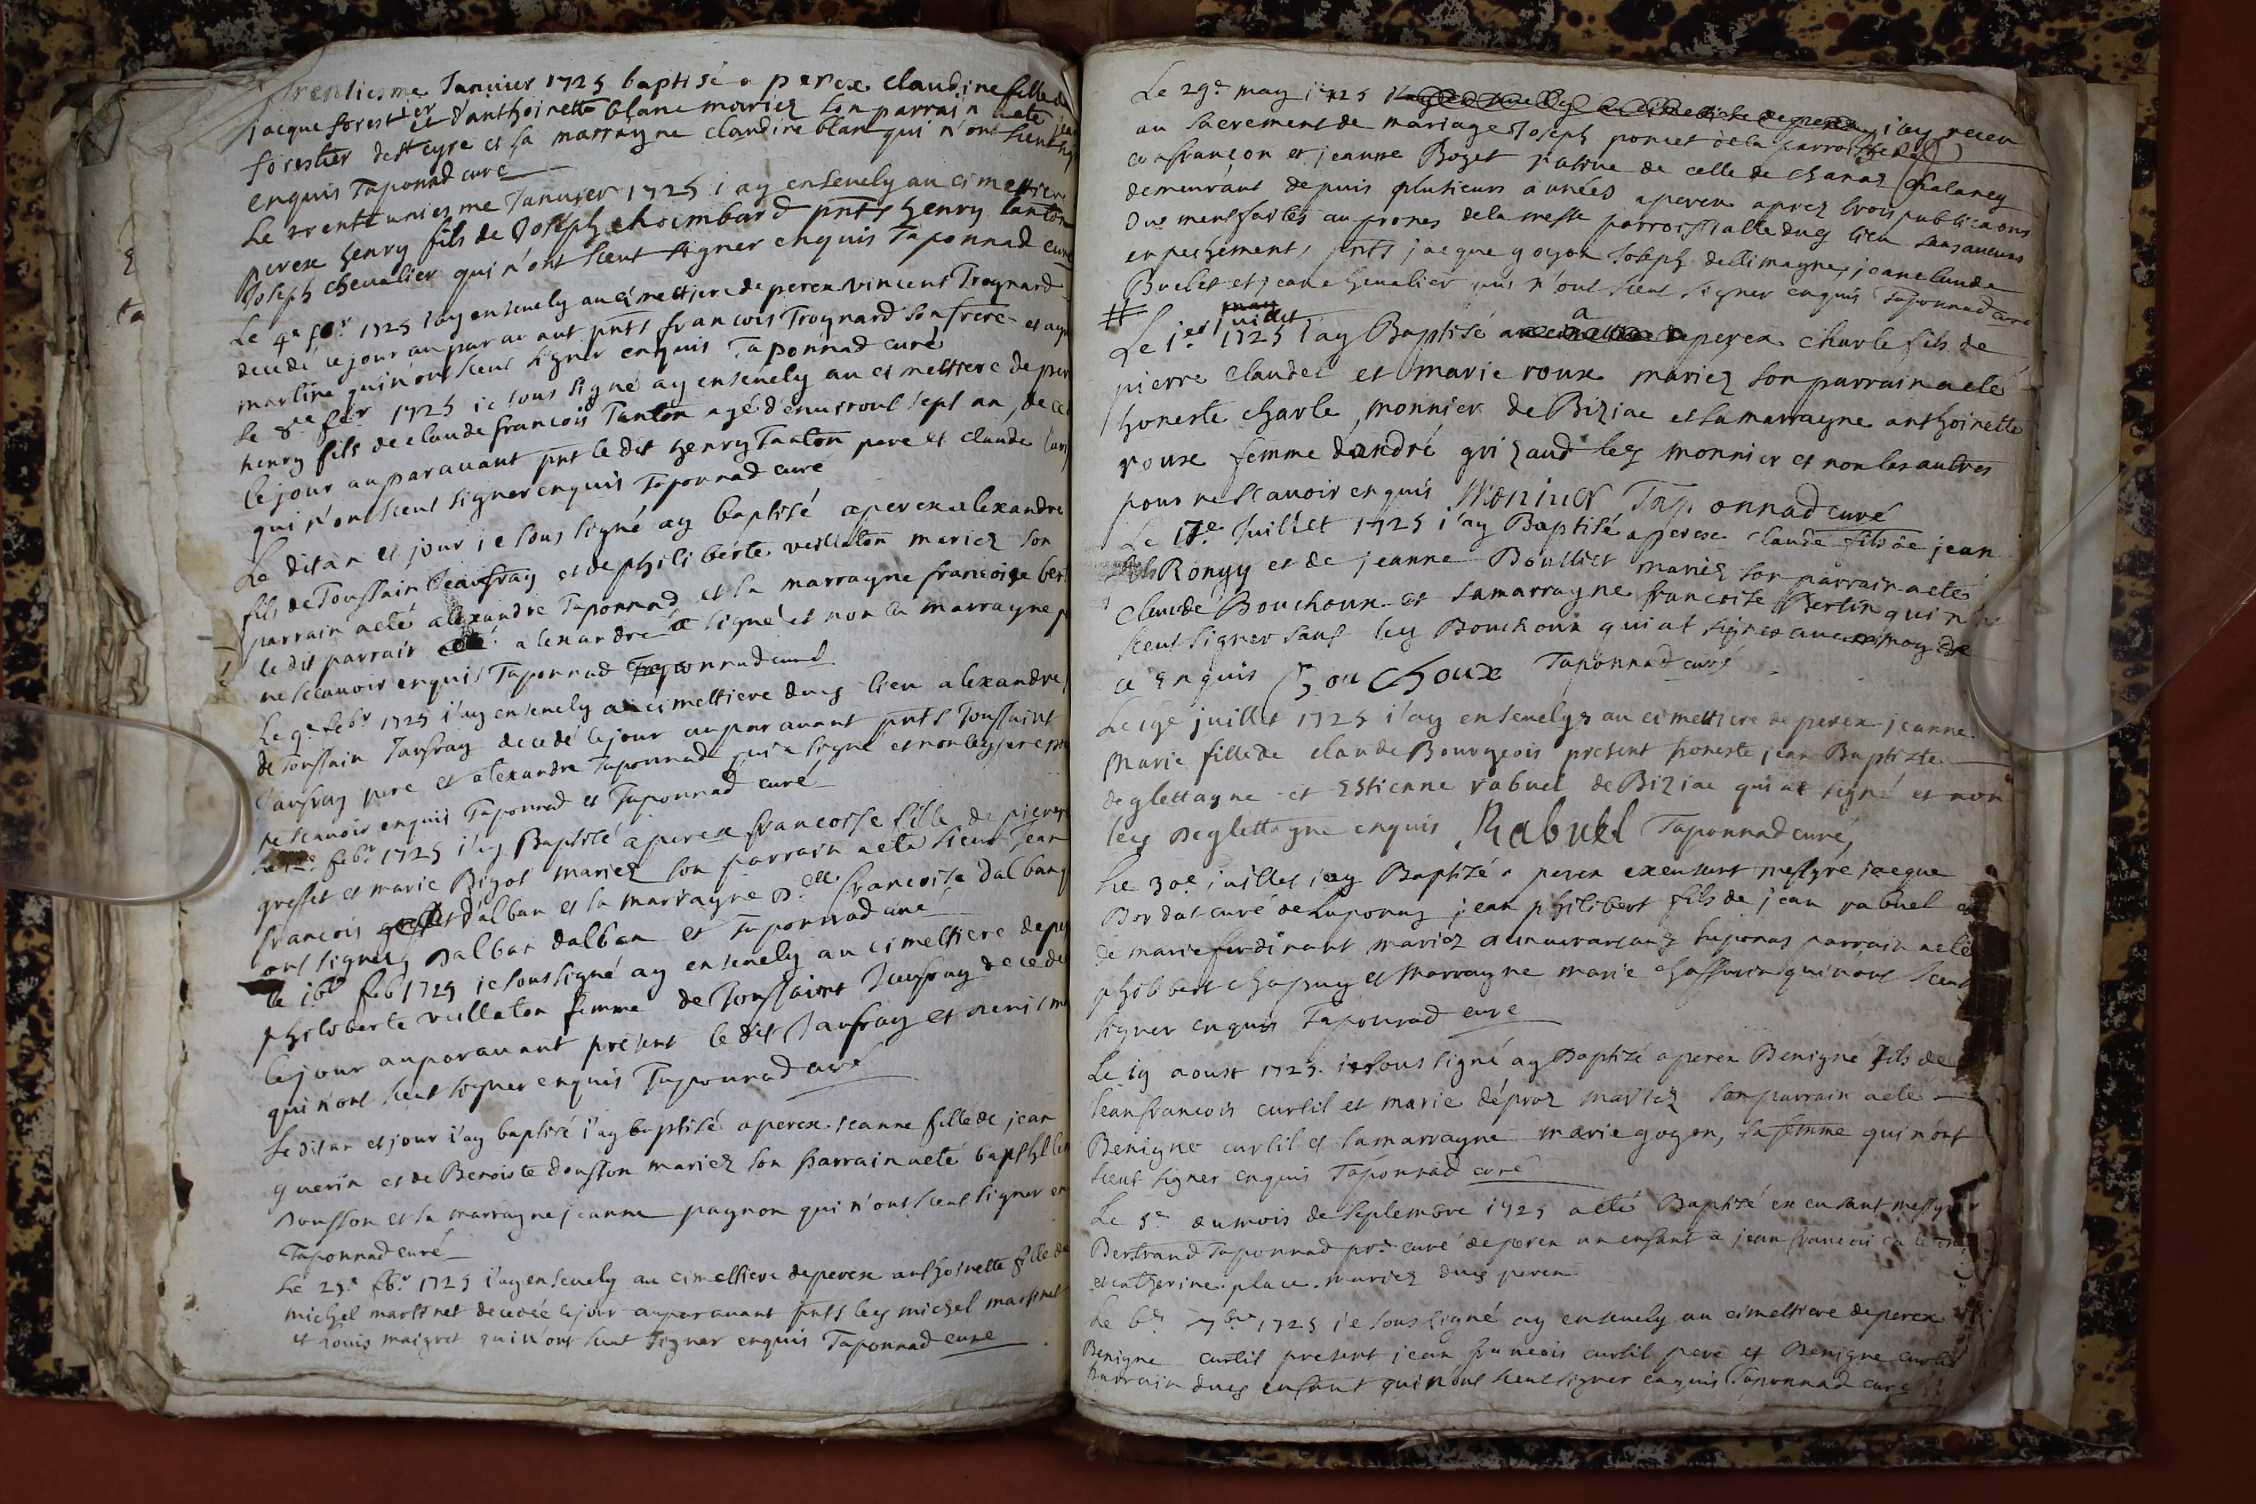 trentiesme Januier 1725 baptisé a perex claudine fille de
jacque forestier et d'anthoinette blanc mariez son parrain acté jean
forestier de st cyre et sa marrayne claudine blan qui n'ont sceut
enquis Taponnad curé
Le trente uniesme Januier 1725 i'ay enseuely au cimettiere
perex henry fils de Joseph choimbard pnts henry tanton
Joseph cheualier qui n'ont sceut signer enquis Taponnad curé
Le 4e febr 1725 i'ay enseuely au cimettiere de perex vincent Troynard
decedé le jour auparauant pnts francois Troynard son frere et
martine qui n'ont sceut signer enquis Taponnad curé
Le 8e febr 1725 ie sous signé ay enseuely au cimettiere de per
henry fils de claude francois Tanton agé d'enuiront sept an, de ce
le jour auparauant pnt le dit henry Tanton pere et claude
qui n'ont sceut signer enquis Taponnad curé
Le dit an et jour ie sous signé ay baptisé a perex alexandre
fils de Toussain Jaufray et de philiberte veillaton mariez son
parrain acté alexandre Taponnad et la marrayne francoise ber
le dit parrain alexandre a signé et non la marrayne p
ne sceauoir enquis Taponnad Taponnad curé
Le 9e febr 1725 i'ay enseuely au cimettiere dug lieu alexandre
de Toussain Jaufray decedé le jour auparauant pnts Toussaint
Jaufray pere et alexandre Taponnad qui a signé et non ley pere
ne sceauoir enquis Taponnad et Taponnad curé
febr 1725 i'ay Baptisé a perex francoise fille de pierre
gresset et marie Bigot mariez son parrain acté sieur Jean
francois dalban et la marrayne Delle francoise dalban
ont signez, Dalban dalban et Taponnad curé
le 16e feb 1725 ie sous signé ay enseuely au cimettiere de pe
philiberte veillaton femme de Toussaint Jaufray decede
le jour auparauant present le dit Jaufray et
qui n'ont sceut signer enquis Taponnad curé
Le dit an et jour i'ay baptisé i'ay baptisé a perex jeanne fille de jean
guerin et de Benoiste dousson mariez son parrain acté
Dousson et sa marrayne jeanne pagnon qui n'ont sceut signer en
Taponnad curé
Le 25e febr 1725 i'ay enseuely au cimettiere de perex anthoinette fille de
michel martinet decedée le jour auparauant pnts ley michel martinet
et louis maigret qui n'ont sceut signer enquis Taponnad curé
Le 29e may 1725 i'ay receu
au sacrement de mariage Joseph poncet de la parroisse de
confrançon et jeanne Boget natiue de celle de chanaz chalancy
demeurant depuis plusieurs années a perex aprez trois publicaons
Duement faites au prones de la messe parroissialle dug lieu sans aucuns
enpechement, pnts jacque goyon Joseph dellimagne, jean claude
Buelet et jean cheualier qui n'ont sceut signer enquis Taponnad curé
# may juillet
Le 1er 1725 i'ay Baptisé a perex charle fils de
pierre claudel et marie roux mariez son parrain acté
honeste charle monnier de Biziac et sa marrayne anthoinette
roux femme d'andré grizaud ley monnier et non les autres
pour ne sceauoir enquis Monnier Taponnad curé
Le 17e Juillet 1725 i'ay Baptisé a perex claude fils de jean
Rongy et de jeanne Boulliet mariez son parrain acté
claude Bouchoux et sa marrayne francoise Bertin qui n'a
sceut signer sauf ley Bouchoux qui at signer auec moy de
ce enquis Bouchoux Taponnad curé
Le 19e juillet 1725 i'ay enseuely au cimettiere de perex jeanne
Marie fille de claude Bourgeois present honeste jean Baptiste
deglettagne et Estienne rabuel de Biziac qui at signé et non
ley Deglettagne enquis Rabuel Taponnad curé,
Le 30e juillet i'ay Baptizé a perex excusant messyre jacque
Bordat curé de Luponnay jean philibert fils de jean rabuel et
de marie ferdinant mariez luponas parrain acté
philibert chapuy et Marrayne marie chassurin qui n'ont sceut
signer enquis Taponnad curé
Le 19 aoust 1725. ie sous signé ay Baptizé a perex Benigne fils de
Jean francois curtil et marie dépraz mariez son parrain acté
Benigne curtil et sa marrayne marie goyon, sa femme qui n'ont
sceut signer enquis Taponnad curé
Le 5e du mois de Septembre 1725 acté Baptizé excusant messyre
Bertrand Taponnad pre curé de perex un enfant a jean francois
et catherine place mariez dug perex
Le 6e 7bre 1725 ie sous signé ay enseuely au cimettiere de perex
Benigne curtil present jean francois curtil pere et Benigne curtil
Parrain dug enfant qui n'ont sceut signer enquis Taponnad curé